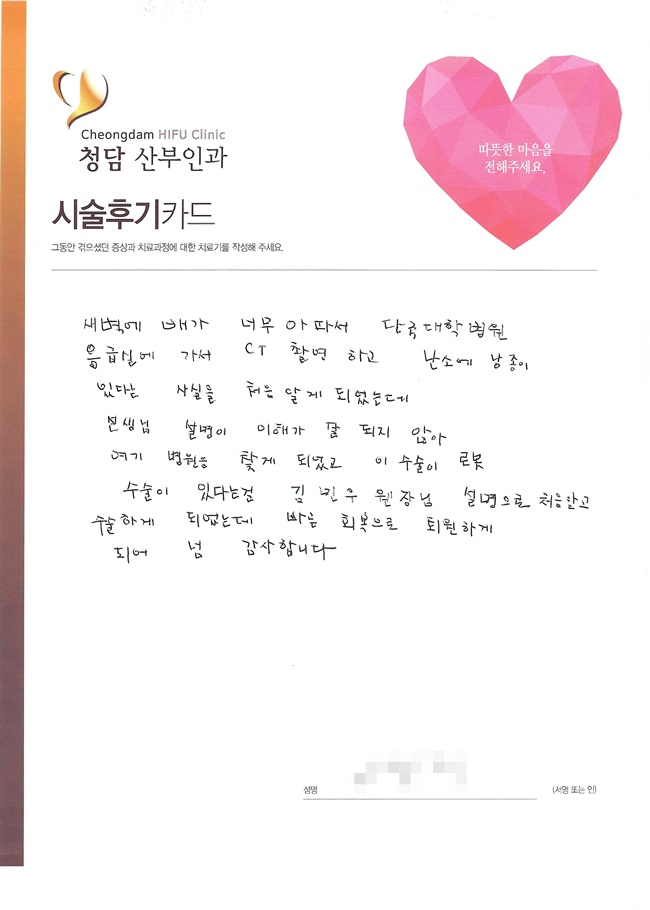 Cheongdam HIFU Clinic
청담 산부인과
따뜻한 마음을
전해주세요.
시술후기카드
그동안 겪으셨던 증상과 치료과정에 대한 치료기를 작성해 주세요.
새벽에 배가 너무 아파서 단국대학병원
응급실에 가서 CT 촬영 하고 난소에 낭종이
있다는 사실을 처음 알게 되었는데
선생님 설명이 이해가 잘 되지 않아
여기 병원을 찾게 되었고 이 수술이 로봇
수술이 있다는걸 김민우 원장님 설명으로 처음알고
수술하게 되었는데 빠른 회복으로 퇴원하게
되어 넘 감사합니다
성명
(서명 또는 인)